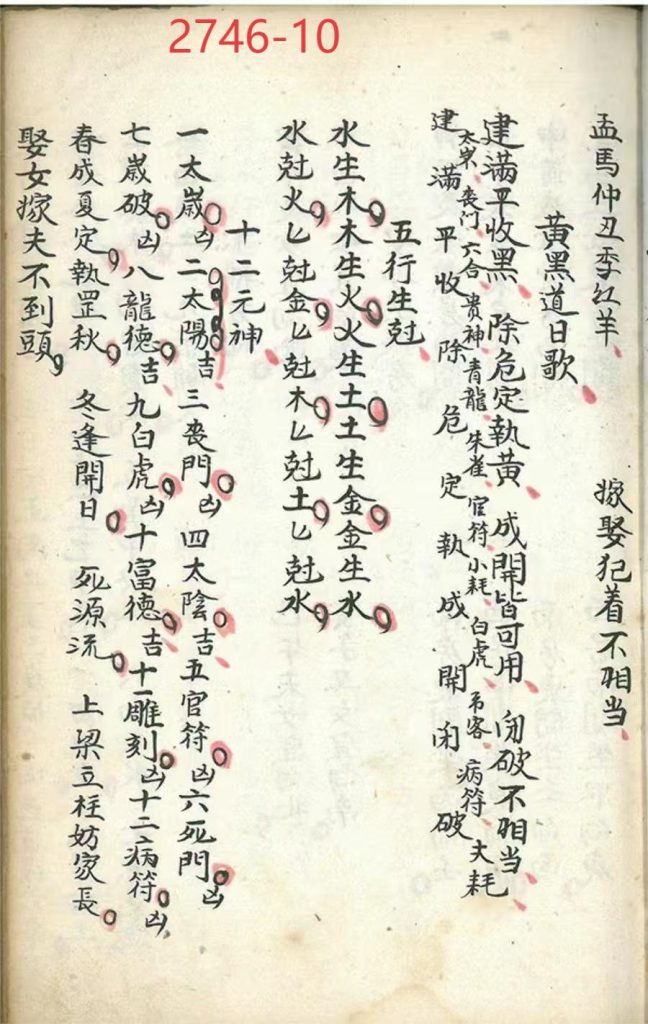 2746-10
孟馬仲丑季红羊 嫁娶犯着不相当
黃黑道日歌
建滿平收黑 除危定執黄 成開皆可用 闭破不相当
太嵗 丧门 六合 贵神 青龍 朱雀 官符 小耗 白虎 吊客 病符 大耗
建滿平收除危定執成開闭破
五行生尅
水生木木生火火生土土生金金生水
水尅火匕尅金匕尅木匕尅土匕尅水
十二元神
一太嵗凶二太陽吉三丧門凶四太陰吉五官符凶六死門凶
七嵗破凶八龍德吉九白虎凶十富德吉十一雕刻凶十二病符凶
春成夏定執罡秋 冬逢開日死源流 上梁立柱妨家長
娶女嫁夫不到頭